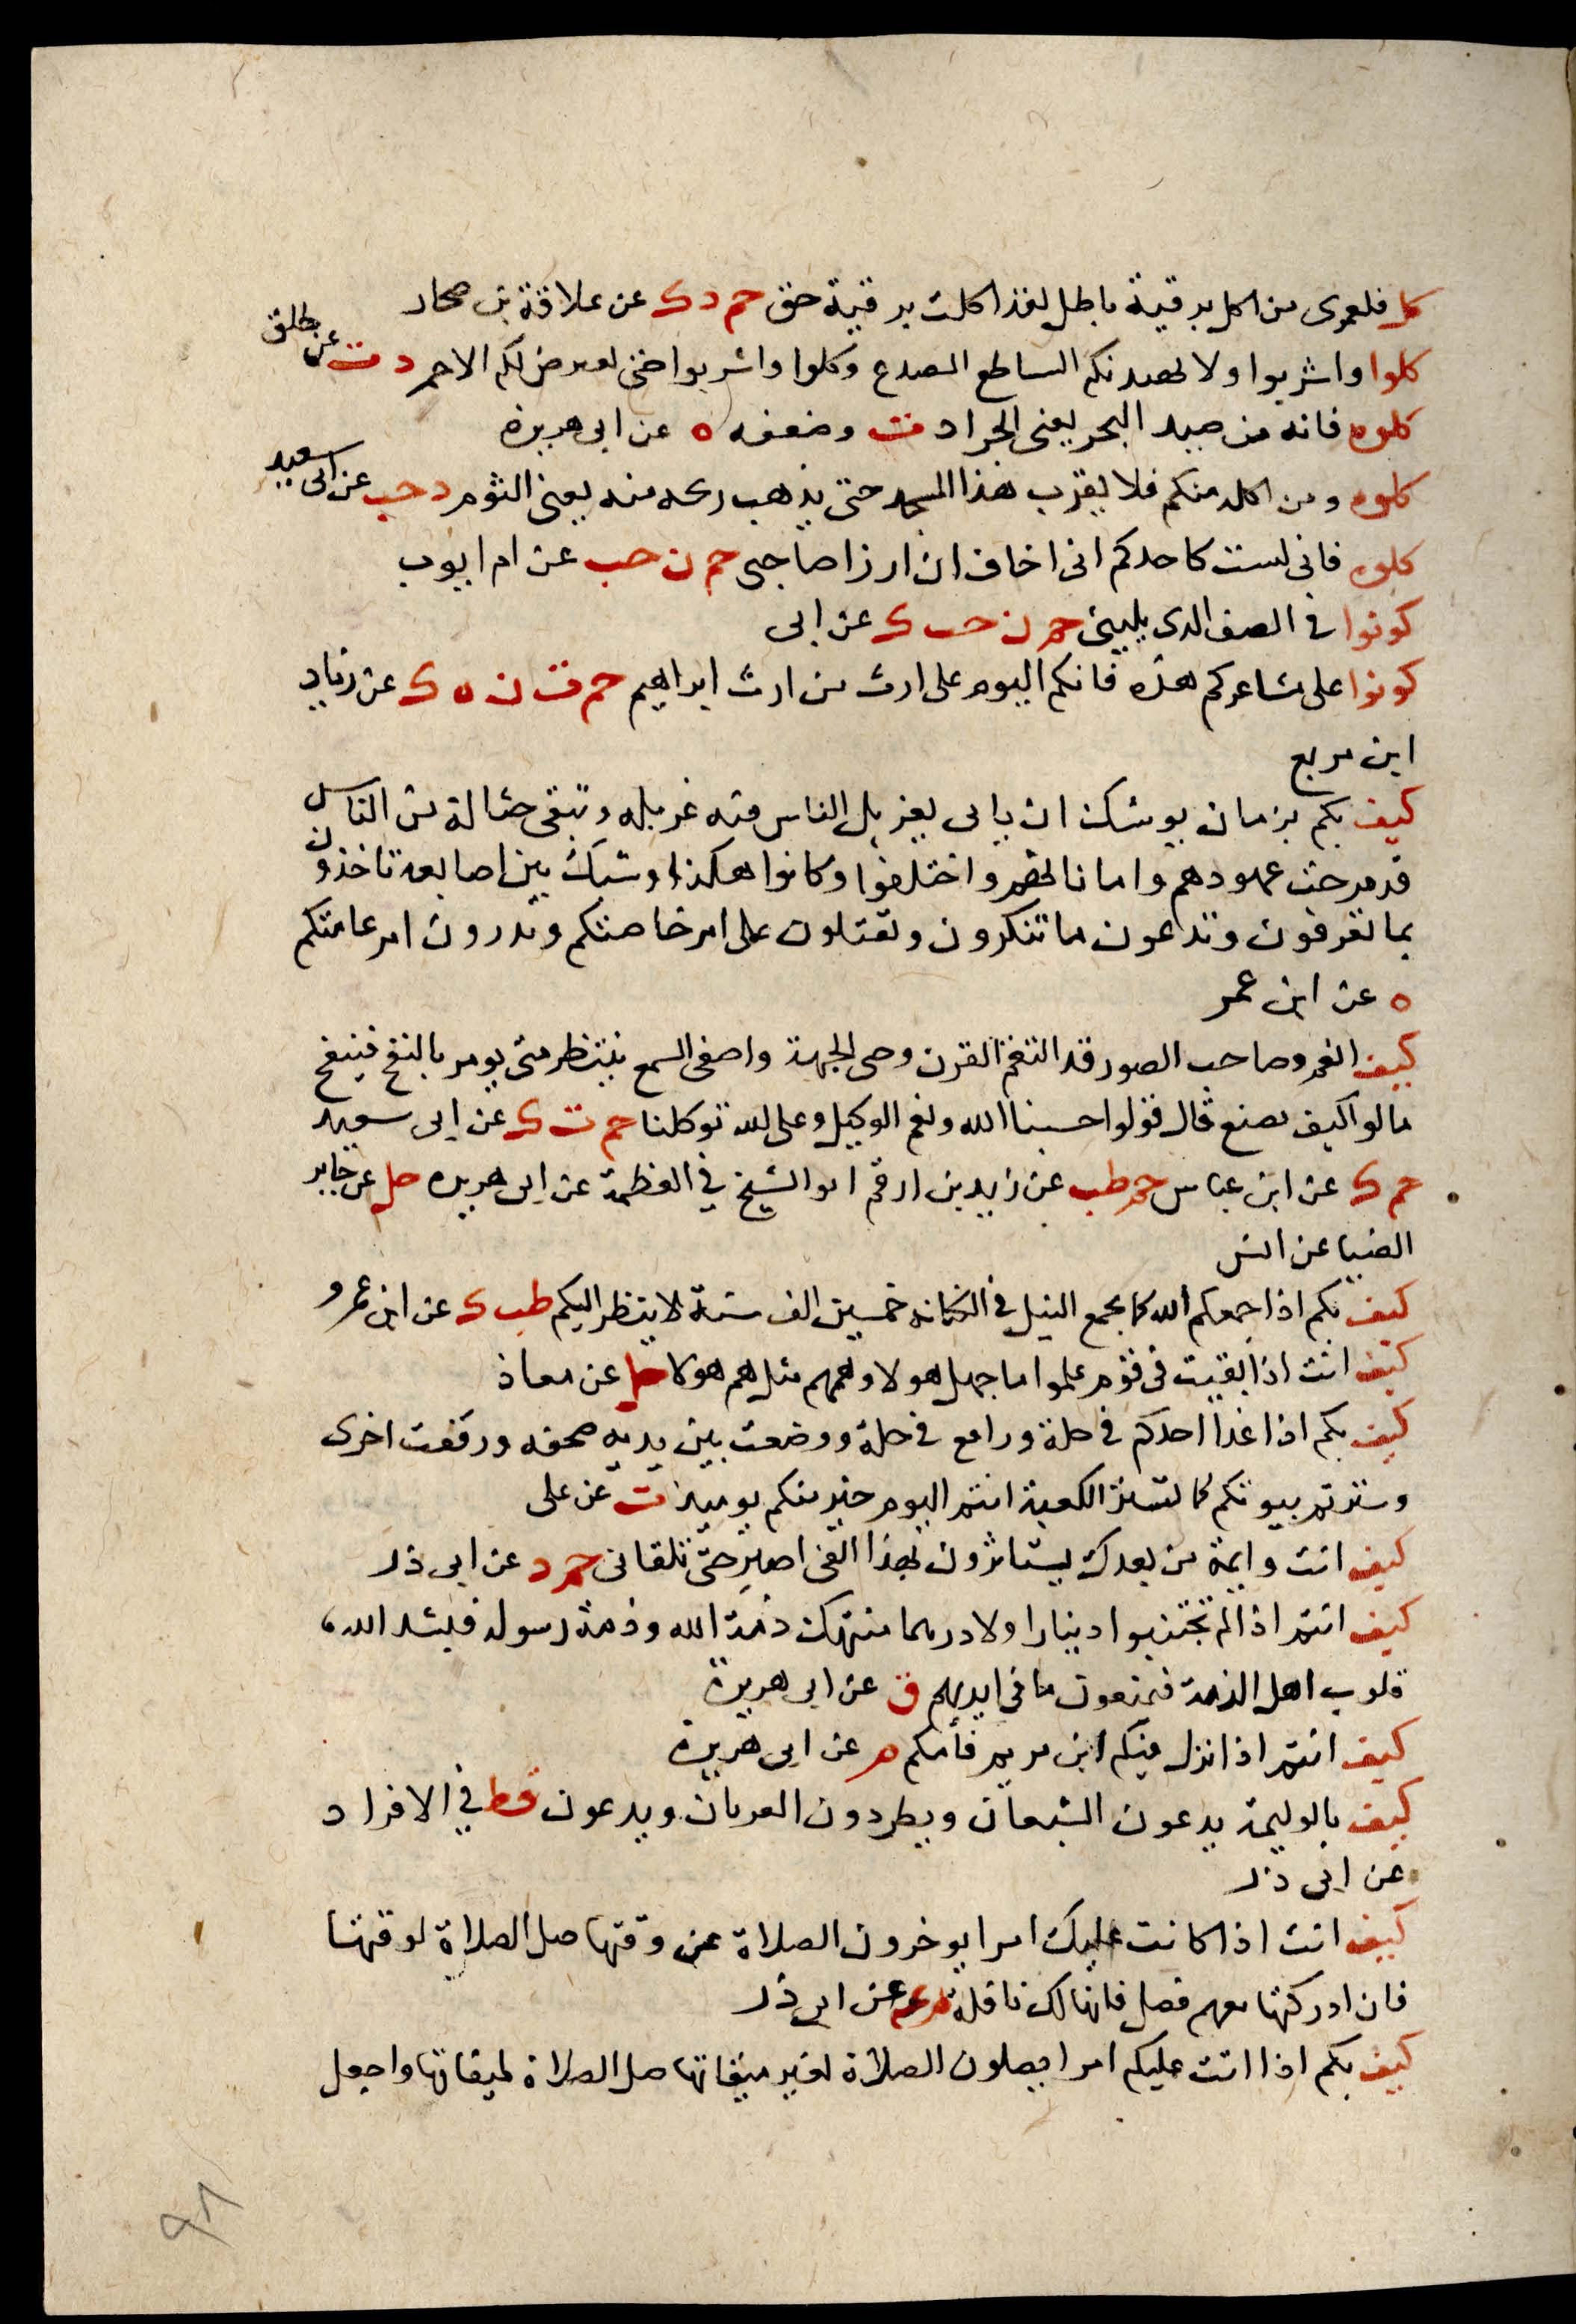 كل فلعمرى من اكل برقية باطل لقد اكلت برقية حق حم د ك عن علاقة بن صحار
كلوا واشربوا ولا يهيدنكم الساطع المصدع وكلوا واشربوا حتى يعرض لكم الاحمر د ت عن طلق
كلوه فانه من صيد البحر يعنى الجراد ت وضعفه ه عن ابى هريرة
كلوه ومن اكله منكم فلا يقرب هذا المسجد حتى يذهب ريحه منه يعنى الثوم د حب عن ابى سعيد
كلوه فانى لست كاحدكم انى اخاف ان اوذا صاحبى حم ن حب عن ام ايوب
كونوا فى الصف الدى يلينى حم ن حب ك عن ابى
كونوا على مشاعركم هذه فانكم اليوم على ارث من ارث ابراهيم حم ت ن ه ك عن زياد
ابن مربع
كيف بكم بزمان يوشك ان ياتى يغربل الناس فيه غربله وتبقى حثالة من الناس
قد مرجت عهودهم واماناتهم واختلفوا وكانوا هكذا وشبك بين اصابعه تاخذون
بما تعرفون وتدعون ما تنكرون وتقبلون على امر خاصتكم وتدرون امر عامتكم
ه عن ابن عمر
كيف انعم وصاحب الصور قد التقم القرن وحنى الجبهة واصغى السمع ينتظر متى يومر بالنفخ فينفخ
قالوا كيف نصنع قال قولوا حسبنا الله ونعم الوكيل وعلى الله توكلنا حم ت ك عن ابى سعيد
حم ك عن ابن عباس حم طب عن زيد بن ارقم ابو الشيخ في العظمة عن ابى هريره حل عن جابر
الضيا عن انس
كيف بكم اذا جمعكم الله كما يجمع النبل فى الكنانه خمسين الف سنة لا ينظر اليكم طب ك عن ابن عمرو
كيف انت اذا بقيت فى قوم علموا ما جهل هولا وهمهم مثل هم هولا حل عن معاذ
كيف بكم اذا غدا احدكم فى حلة وراح فى حلة ووضعت بين يديه صحفه ورفعت اخرى
وسترتم بيوتكم كما تستر الكعبة انتم اليوم خير منكم يوميذ ت عن على
كيف انت وايمة من بعدك يستاثرون بهذا الفى اصبر حتى تلقانى حم د عن ابى ذر
كيف انتم اذا لم تجتنبوا دينارا ولا درهما منتهك ذمة الله وذمة رسوله فيشد الله
قلوب اهل الذمة فيمنعون ما فى ايديهم ق عن ابى هريرة
كيف انتم اذا نزل فيكم ابن مريم فأمكم م عن ابى هريرة
كيف بالوليمة يدعون الشبعان ويطردون الغرثان ويدعون قط في الافراد
عن ابى ذر
كيف انت اذا كانت عليك امرا يوخرون الصلاة عن وقتها صل الصلاة لوقتها
فان ادركتها معهم فصل فانها لك نافلة م عن ابى ذر
كيف بكم اذا اتت عليكم امرا يصلون الصلاة لغير ميقاتها صل الصلاة لميقاتها واجعل